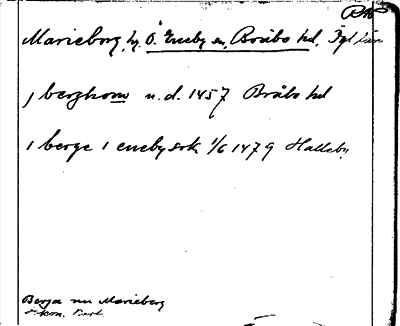 Marieborg, hg, Ö. Eneby sn, Bråbo hd, Ögl län
j berghom u.d. 1457 Bråbo hd
i berge i eneby sok 1/6 1479 Halleby
Berga nu Marieborg